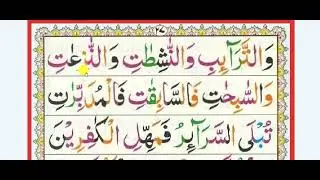 ٢٧
وَالتَّرَآئِبِ وَالنّٰشِطٰتِ وَالنّٰزِعٰتِ
وَالسّٰبِحٰتِ فَالسّٰبِقٰتِ فَالْمُدَبِّرٰتِ
تُبْلَى السَّرَآئِرُ فَمَهِّلِ الْكٰفِرِيْنَ